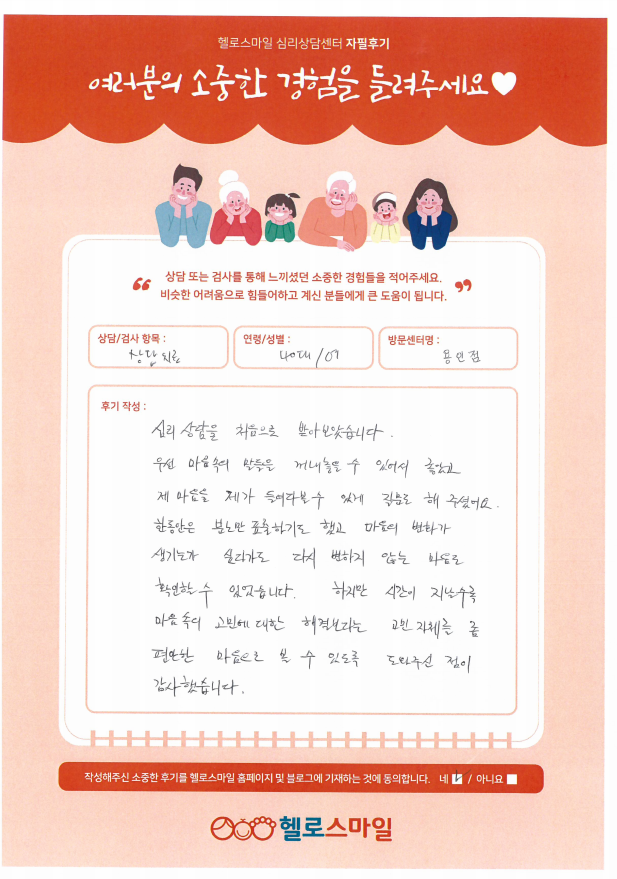 헬로스마일 심리상담센터 자필후기
여러분의 소중한 경험을 들려주세요
상담 또는 검사를 통해 느끼셨던 소중한 경험들을 적어주세요.
비슷한 어려움으로 힘들어하고 계신 분들에게 큰 도움이 됩니다.
상담/검사 항목 :
상담치료
연령/성별 :
40대/여
방문센터명 :
용인점
후기 작성 :
심리 상담을 처음으로 받아보았습니다.
우선 마음속의 말들을 꺼내놓을 수 있어서 좋았고
제 마음을 제가 들여다볼 수 있게 질문도 해 주셨어요.
한동안은 분노만 표출하기도 했고 마음의 변화가
생기는가 싶다가도 다시 변하지 않는 마음도
확인할 수 있었습니다. 하지만 시간이 지날수록
마음 속의 고민에 대한 해결보다는 고민 자체를 좀
편안한 마음으로 볼 수 있도록 도와주신 점이
감사했습니다.
작성해주신 소중한 후기를 헬로스마일 홈페이지 및 블로그에 기재하는 것에 동의합니다. 네 / 아니요
헬로스마일